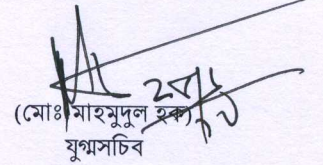 (মোঃ মাহমুদুল হক)
যুগ্মসচিব